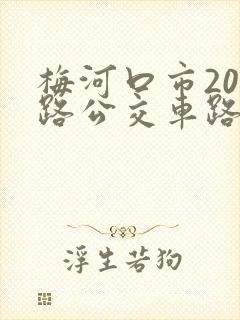 梅河口市20
路公交车路
浮生若狗